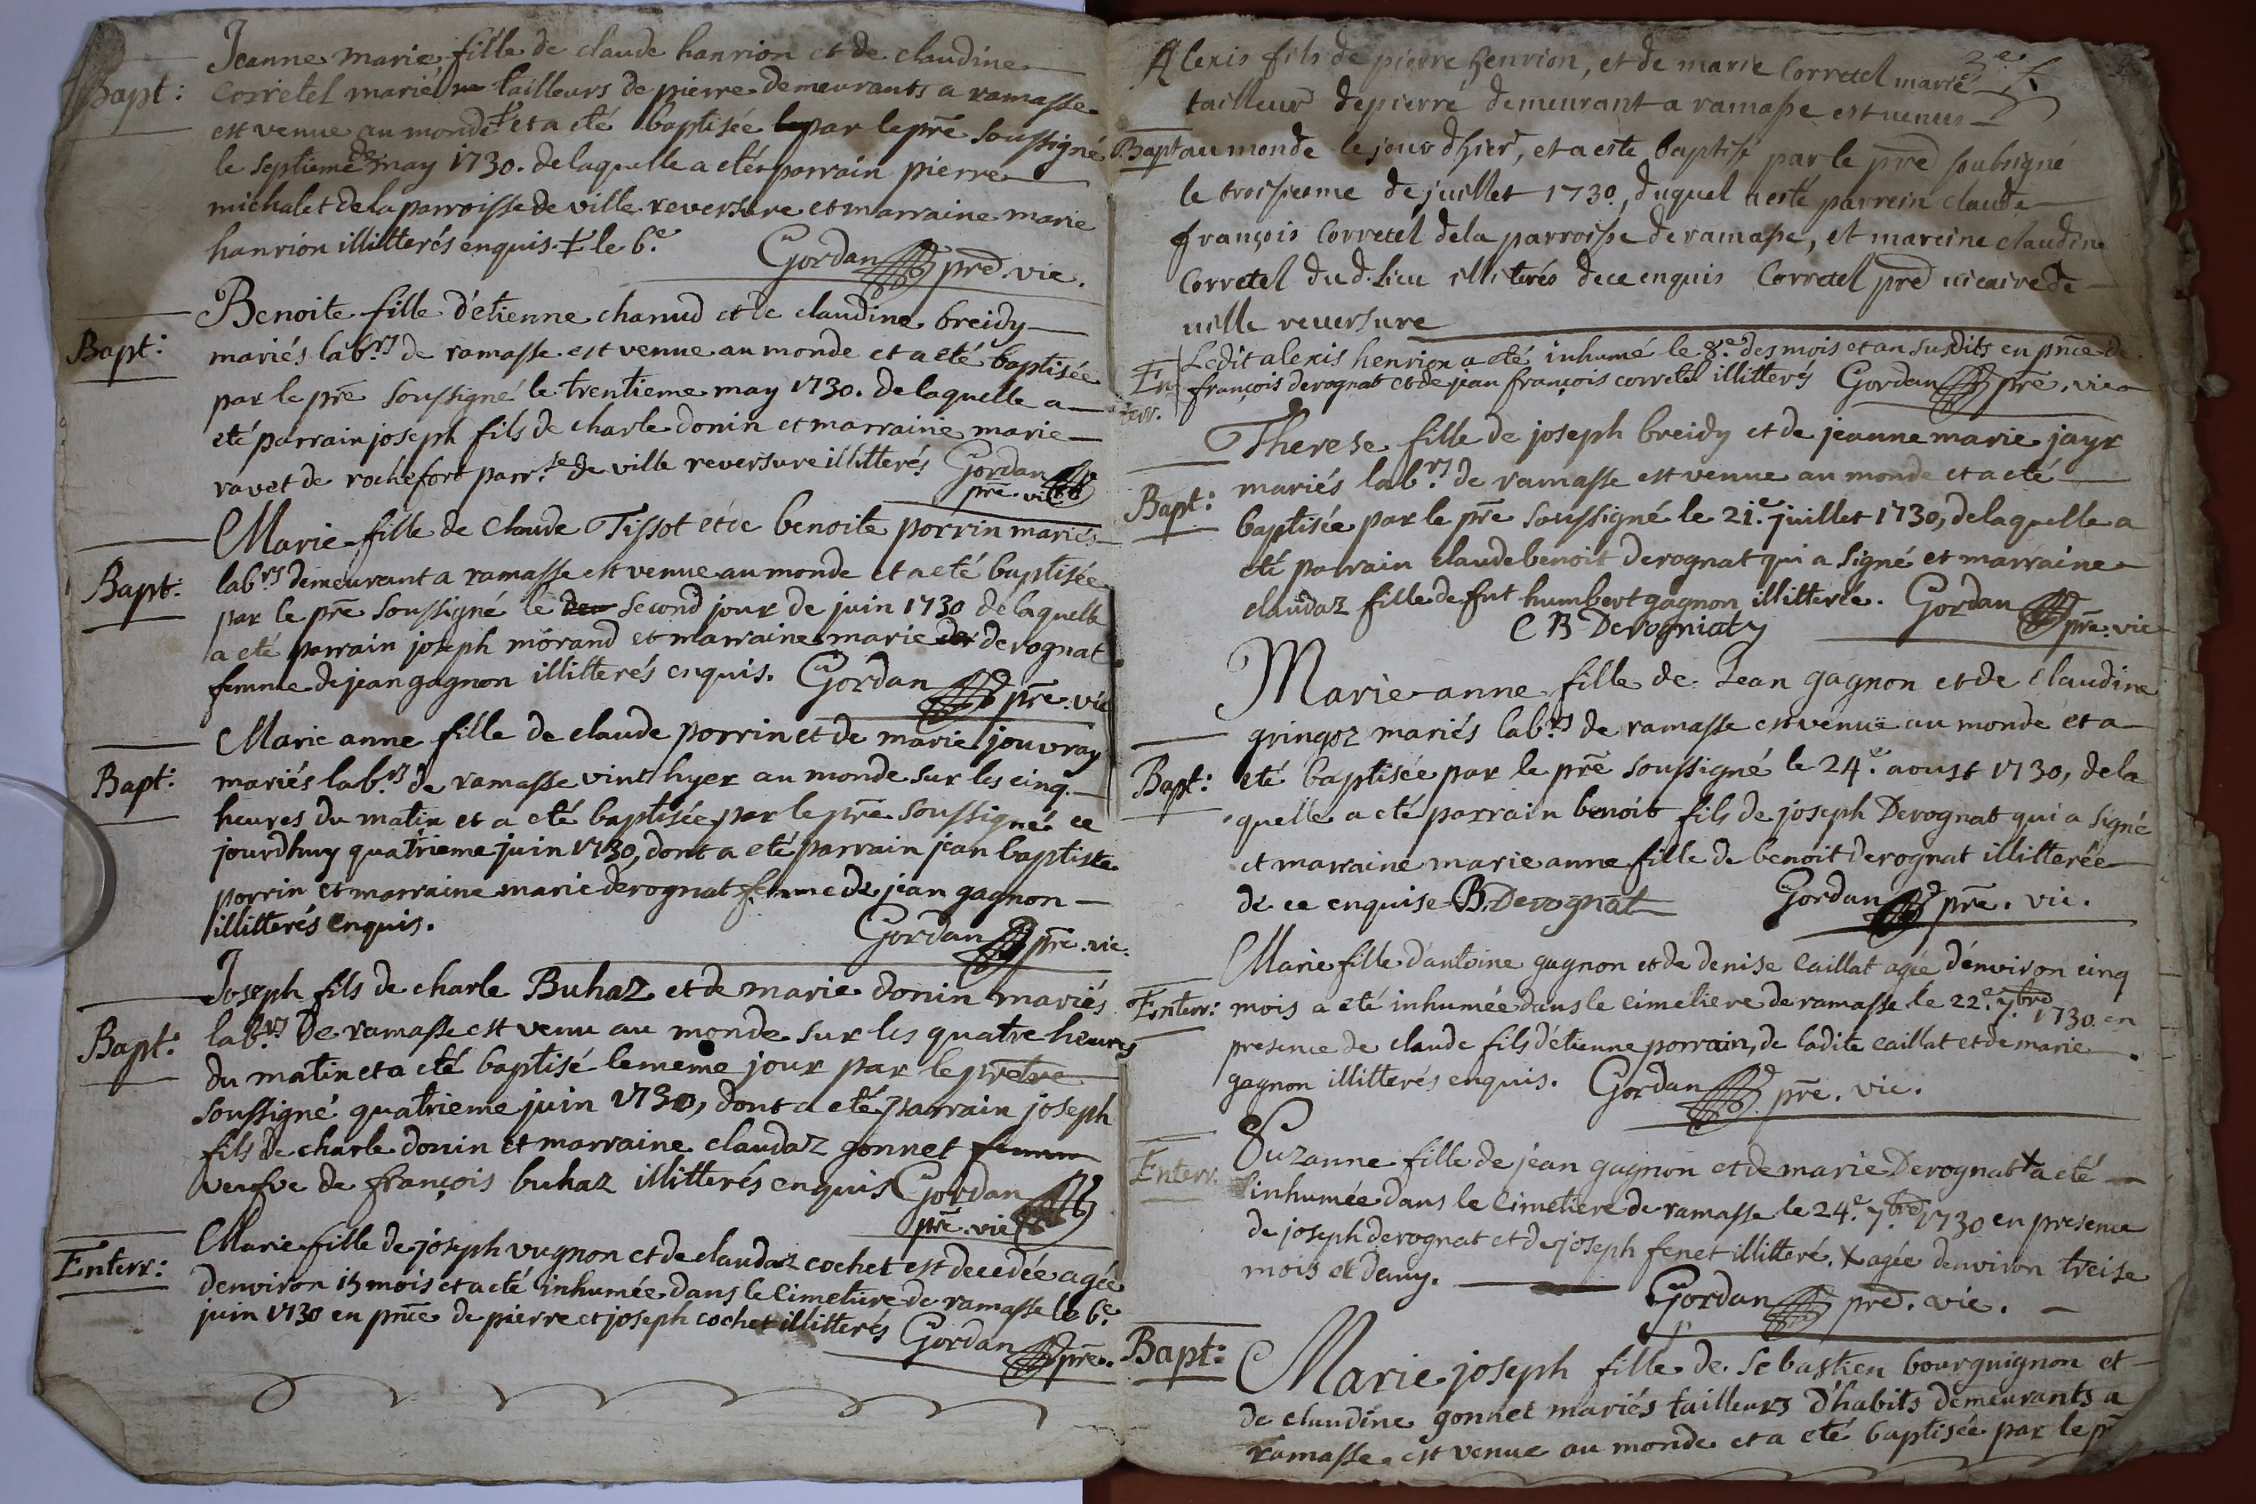 Jeanne marie fille de claude hanrion et de claudine
Bapt: Corretel mariés tailleurs de pierre demeurants a ramasse
est venue au monde ✝ et a eté baptisée par le pre soussigné
le septieme may 1730. de laquelle a eté parrain pierre
michalet de la parroisse de ville reversure et marraine marie
hanrion illitterés enquis. ✝ le 6.e Gordan pre vic.
Benoite fille d'étienne chanud et de claudine breidy
Bapt: mariés lab.rs de ramasse est venue au monde et a eté baptisée
par le pre soussigné le trentieme may 1730. de laquelle a
eté parrain joseph fils de charle donin et marraine marie
ravet de rochefort parr.se de ville reversure illitterés Gordan
pre. vic
Marie fille de Claude Tissot et de benoite porrin mariés
Bapt: lab.rs demeurant a ramasse est venue au monde et a eté baptisée
par le pre soussigné le second jour de juin 1730 de laquelle
a eté parrain joseph morand et marraine marie derognat
femme de jean gagnon illitterés enquis. Gordan pre. vic
Marie anne fille de claude porrin et de marie jouvray
Bapt: mariés lab.rs de ramasse vint hyer au monde sur les cinq
heures du matin et a eté baptisée par le pre soussigné ce
jourdhuy quatrieme juin 1730, dont a eté parrain jean baptiste
porrin et marraine marie derognat femme de jean gagnon
illitterés enquis. Gordan pre. vic.
Joseph fils de charle Buhaz et de marie donin mariés
Bapt: lab.rs De ramasse est venu au monde sur les quatre heures
du matin et a eté baptisé le meme jour par le pretre
soussigné quatrieme juin 1730, dont a eté parrain joseph
fils de charle donin et marraine claudaz gonnet femm
veufve de françois buhaz illitterés enquis Gordan
pre. vic
Marie fille de joseph vugnon et de claudaz cochet est decedée agée
Enterr: denviron 15 mois et a eté inhumée dans le Cimetiere de ramasse le 6.e
juin 1730 en pnce de pierre et joseph cochet illitterés Gordan pre.
3.e f
Alexis fils de pierre henrion, et de marie Corretel marié
tailleur de pierre demeurant a ramasse est venus
Bapt au monde le jour d'hier, et a esté baptisé par le pre soubsigné
le troisiesme de juillet 1730, duquel a esté parrein claude
françois Corretel de la parroisse de ramasse, et mareine claudine
Corretel dud. lieu illiterés de ce enquis Corretel pre vicaire de
ville reversure
Ledit alexis henrion a eté inhumé le 8.e des mois et an susdits en pnce de
En terr. françois derognat et de jean françois corretel illitterés Gordan pre. vic
Therese fille de joseph breidy et de jeanne marie jayr
Bapt: mariés lab.rs de ramasse est venue au monde et a eté
baptisée par le pre soussigné le 21.e juillet 1730, de laquelle a
eté parrain claude benoit derognat qui a signé et marraine
claudaz fille de fut humbert gagnon illitterée. Gordan
C B Derogniaty pre. vic
Marie anne fille de Jean gagnon et de Claudine
gringoz mariés lab.rs de ramasse est venuë au monde et a
Bapt: eté baptisée par le pre soussigné le 24.e aoust 1730, de la
quelle a eté parrain benoit fils de joseph Derognat qui a signé
et marraine marie anne fille de benoit derognat illitterée
de ce enquise B. Derognat Gordan pre. vic.
Marie fille d'antoine gagnon et de denise Caillat agée d'environ cinq
Enterr: mois a eté inhumée dans le cimetiere de ramasse le 22.e 7.bre 1730. en
presence de claude fils d'étienne porrain, de ladite caillat et de marie
gagnon illitterés enquis. Gordan pre. vic.
Suzanne fille de jean gagnon et de marie Derognat x a eté
Enterr. inhumée dans le Cimetiere de ramasse le 24.e 7.bre 1730 en presence
de joseph derognat et de joseph fenet illitteré. x agée denviron treise
mois et demy. Gordan pre. vic.
Bapt: Marie joseph fille de Sebastien bourguignon et
de claudine gonnet mariés tailleurs D'habits demeurants a
ramasse est venue au monde et a eté baptisée par le pr